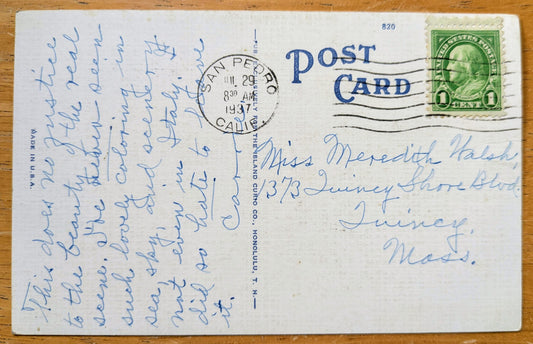 This does no justice
to the beauty of the real
scene. I've never seen
such lovely coloring in
sea, sky, and scenery
not even in Italy. I
did so hate to leave
it.
Carrol
MADE IN U.S.A.
PUB. EXCLUSIVELY FOR THE ISLAND CURIO CO., HONOLULU, T. H.
820
POST
CARD
SAN PEDRO
JUL 29
8 30 AM
1937
CALIF.
UNITED STATES POSTAGE
1 CENT 1
Miss Meredith Walsh,
373 Quincy Shore Blvd.
Quincy,
Mass.